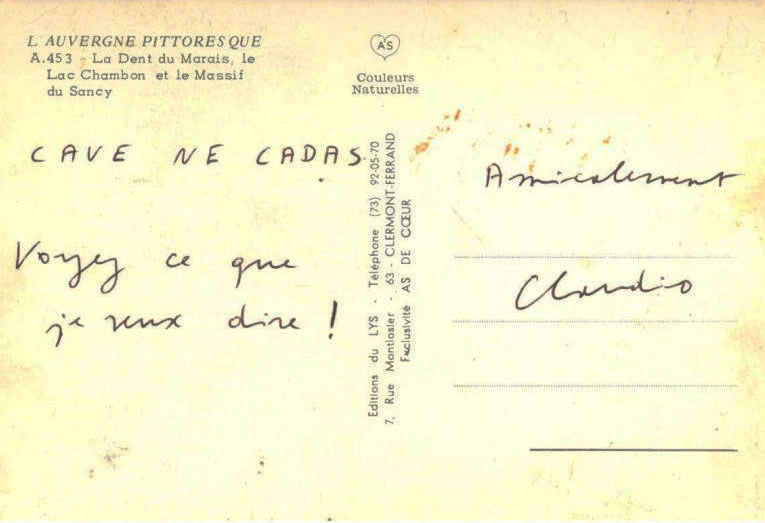 L AUVERGNE PITTORESQUE
A.453 - La Dent du Marais, le
Lac Chambon et le Massif
du Sancy
AS
Couleurs
Naturelles
CAVE NE CADAS.
Voyez ce que
je veux dire !
Editions du LYS - Téléphone (73) 92-05-70
7, Rue Montlosier - 63 - CLERMONT-FERRAND
Exclusivité AS DE CŒUR
Amicalement
Claudio